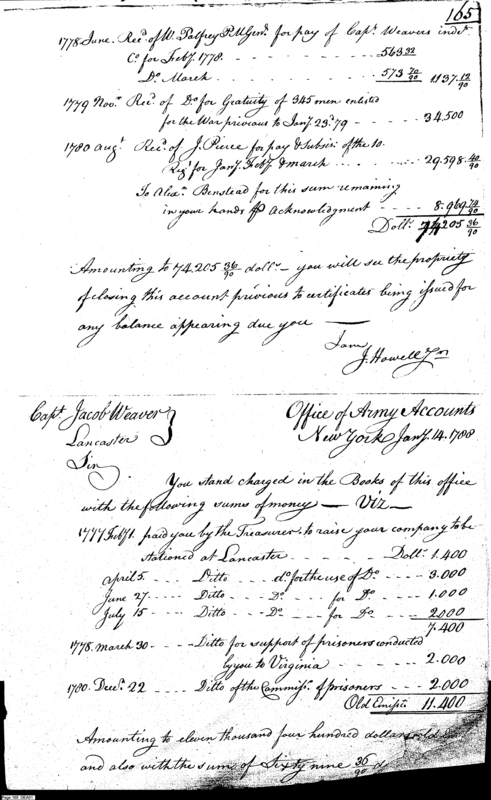 165
1778 June. Rec.d of W. Palfrey P.M.Genl. for pay of Capt. Weavers indt.
Co. for Feby. 1778. - - - - - 563 32/90
Do. March - - - - - 573 70/90 1137 12/90
1779 Novr. Rec.d of Do. for Gratuity of 345 men enlisted
for the War previous to Jany. 23d. 79 - - - - 34,500
1780 augt. Rec.d of J. Pierce for pay & Subsis. of the 10
Regt. for Jany. Feby. & march - - - - 29.598 40/90
To Alexr. Benstead for this sum remaining
in your hands pr acknowledgment - - - - 8.969 74/90
Dollrs. 74205 36/90
Amounting to 74.205 36/90 dollrs. — you will see the propriety
of closing this account previous to certificates being issued for
any balance appearing due you —
I am
J. Howell Jn
Capt. Jacob Weaver }
Lancaster
Office of Army Accounts
New York Jany. 14. 1788
Sir,
You stand charged in the Books of this office
with the following sums of money — Viz —
1777 Feby. 1. paid you by the Treasurer, to raise your company to be
stationed at Lancaster - - - - - Dollrs. 1.400
april 5. - - - - Ditto do. for the use of Do. - - - - 3.000
June 27 - - - - Ditto - - Do. - - for Do. - - - - 1.000
July 15 - - - - Ditto - - Do. - - for Do. - - - - 2000
7.400
1778. march 30 - - - - Ditto for support of prisoners conducted
by you to Virginia - - - - 2.000
1780. Decr. 22 - - - - Ditto of the Commisy. of prisoners - - - - 2.000
Old Emissn. 11.400
Amounting to eleven thousand four hundred dollars old
and also with the sum of Sixty nine 36/90 d